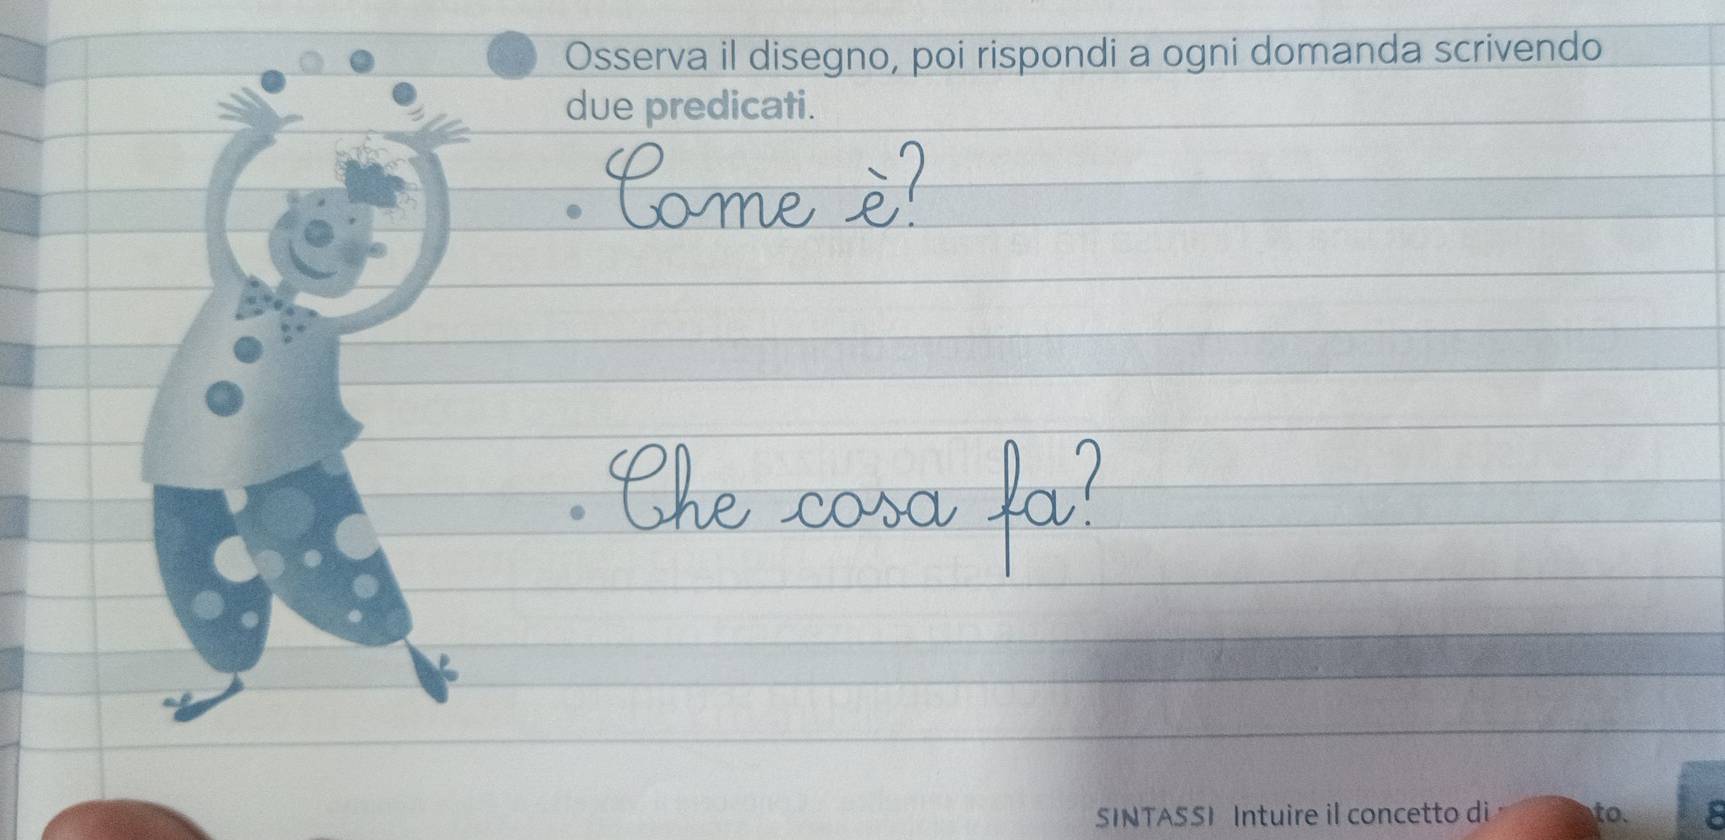 Osserva il disegno, poi rispondi a ogni domanda scrivendo
due predicati.
• Come è?
• Che cosa fa?
SINTASSI Intuire il concetto di